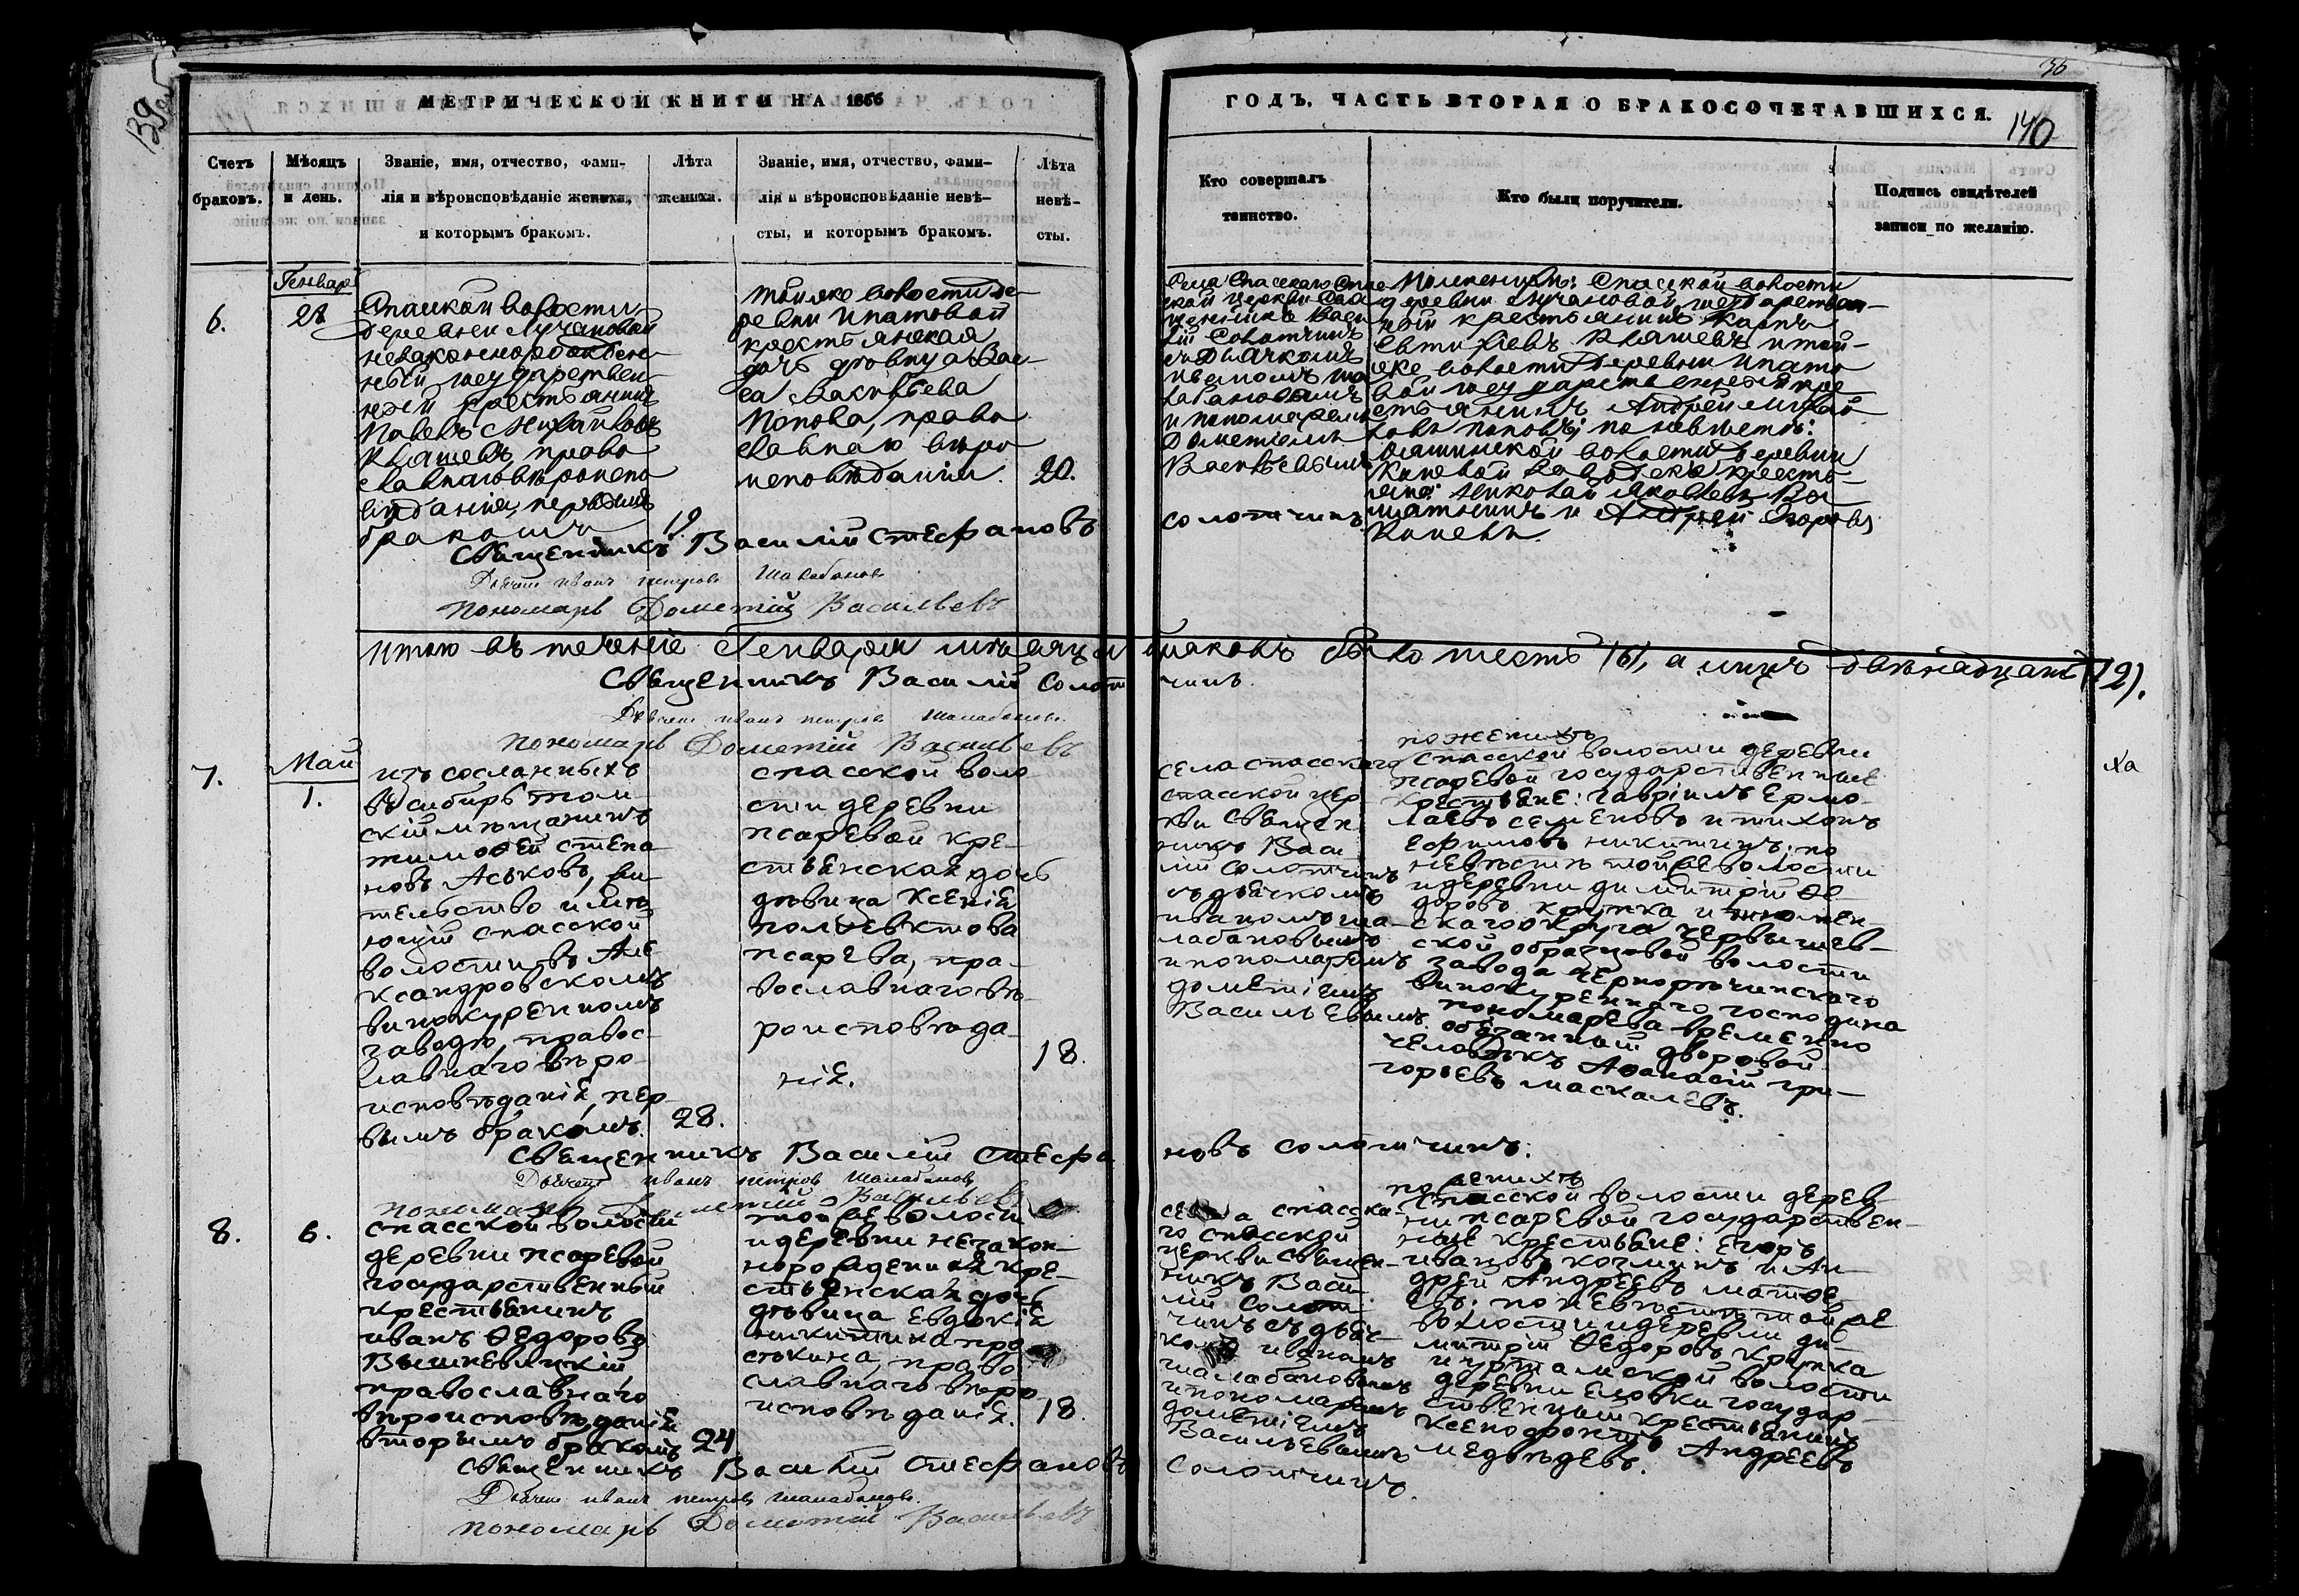 139
36
140
МЕТРИЧЕСКОЙ КНИГИ НА 1866
ГОДЪ, ЧАСТЬ ВТОРАЯ О БРАКОСОЧЕТАВШИХСЯ.
Счетъ
браковъ.
Мѣсяцъ
и день.
Званіе, имя, отчество, фами-
лія и вѣроисповѣданіе жениха,
и которымъ бракомъ.
Лѣта
жениха.
Званіе, имя, отчество, фами-
лія и вѣроисповѣданіе невѣ-
сты, и которымъ бракомъ.
Лѣта
невѣ-
сты.
Кто совершалъ
таинство.
Кто были поручители.
Подпись свидѣтелей
записи по желанію.
6.
Генваря
28
Спаской волости
деревни Лучановой
незаконнорожден-
ный государствен-
ный крестьянинъ
Павелъ Михайловъ
Кляшевъ, право
славнаго вѣроиспо
вѣданія, первымъ
бракомъ
19.
той же волости де-
ревни Ипатовой
крестьянская
дочь дѣвица
Васильева
Попова, право
славнаго вѣро
исповѣданія.
20.
Села Спаскаго Спас
ской церкви Свя
щенникъ Васи
лій Солотчинъ
съ Дьячкомъ
Иваномъ Ша
лабановымъ
и пономаремъ
Дометіемъ
Васильевымъ
По женихѣ: Спаской волости
деревни Лучановой государствен-
ный крестьянинъ Карпъ
Кляшевъ и той-
же волости деревни Ипато
вой государственный кре
стьянинъ Андрей Михай
ловъ Поповъ; по невѣстѣ:
волости деревни
кресть-
яне: Николай Яковлевъ
и Андрей Егоровъ
Священникъ Василій Стефановъ
Солотчинъ
Дьячекъ Иванъ Петровъ Шалабановъ
Пономарь Дометій Васильевъ
Итого въ теченіе Генваря мѣсяца браковъ было шесть /6/, а лицъ двѣнадцать (12).
Священникъ Василій Солотчинъ
Дьячекъ Иванъ Петровъ Шалабановъ
Пономарь Дометій Васильевъ
7.
Май
1.
изъ сосланныхъ
въ сибирь том-
скій мѣщанинъ
тимофей степа-
новъ Аськовъ, жи-
тельство имѣ-
ющій спасской
волости въ Але-
ксандровскомъ
винокуренномъ
заводѣ, правос-
лавнаго вѣро-
исповѣданія, пер-
вымъ бракомъ.
28.
спасской воло
сти деревни
псаревой кре-
стьянская дочь
дѣвица Ксенія
полиевктова
псарева, пра-
вославнаго вѣ-
роисповѣда-
нія.
18.
села спасскаго
спасской цер-
кви священ
никъ Васи-
лій Солотчинъ
съ дьячкомъ
иваномъ ша-
лабановымъ
и пономаремъ
дометіемъ
Васильевымъ
по женихѣ
спасской волости деревни
псаревой государственные
крестьяне: гавріилъ ермо-
лаевъ семеновъ и тихонъ
ефимовъ никитинъ: по
невѣстѣ той же волости
и деревни димитрій Ѳе-
доровъ крупка и тюмен-
скаго округа червишев-
ской образцовой волости
завода черкорѣчинскаго
винокуреннаго господина
пономарева временно
обязанный дворовой
человѣкъ Аѳанасій гри-
горьевъ маскалевъ.
Священникъ Василій Стефановъ Солотчинъ.
Дьячекъ Иванъ Петровъ Шалабановъ
Пономарь Дометій Васильевъ
8.
6.
спасской волости
деревни псаревой
государственный
крестьянинъ
иванъ Ѳедоровъ
православнаго
вѣроисповѣданія
вторымъ бракомъ
24
той же волости
и деревни незакон-
норожденная кре-
стьянская дочь
дѣвица Евдокія
никитина про-
стокина, право
славнаго вѣро
исповѣданія.
18.
села спасска-
го спасской
церкви священ-
никъ Васи-
лій Солот-
чинъ съ дьяч-
комъ иваномъ
шалабановымъ
и пономаремъ
дометіемъ
Васильевымъ
по женихѣ
спасской волости дерев-
ни псаревой государствен-
ные крестьяне: егоръ
ивановъ козминъ и Ан-
дрей Андреевъ матѳе-
евъ: по невѣстѣ той же
волости и деревни ди-
митрій Ѳедоровъ крупка
и уртамской волости
деревни еловки государ-
ственный крестьянинъ
ксенофонтъ Андреевъ
медвѣдевъ.
Священникъ Василій Стефановъ
Солотчинъ.
Дьячекъ Иванъ Петровъ Шалабановъ.
Пономарь Дометій Васильевъ